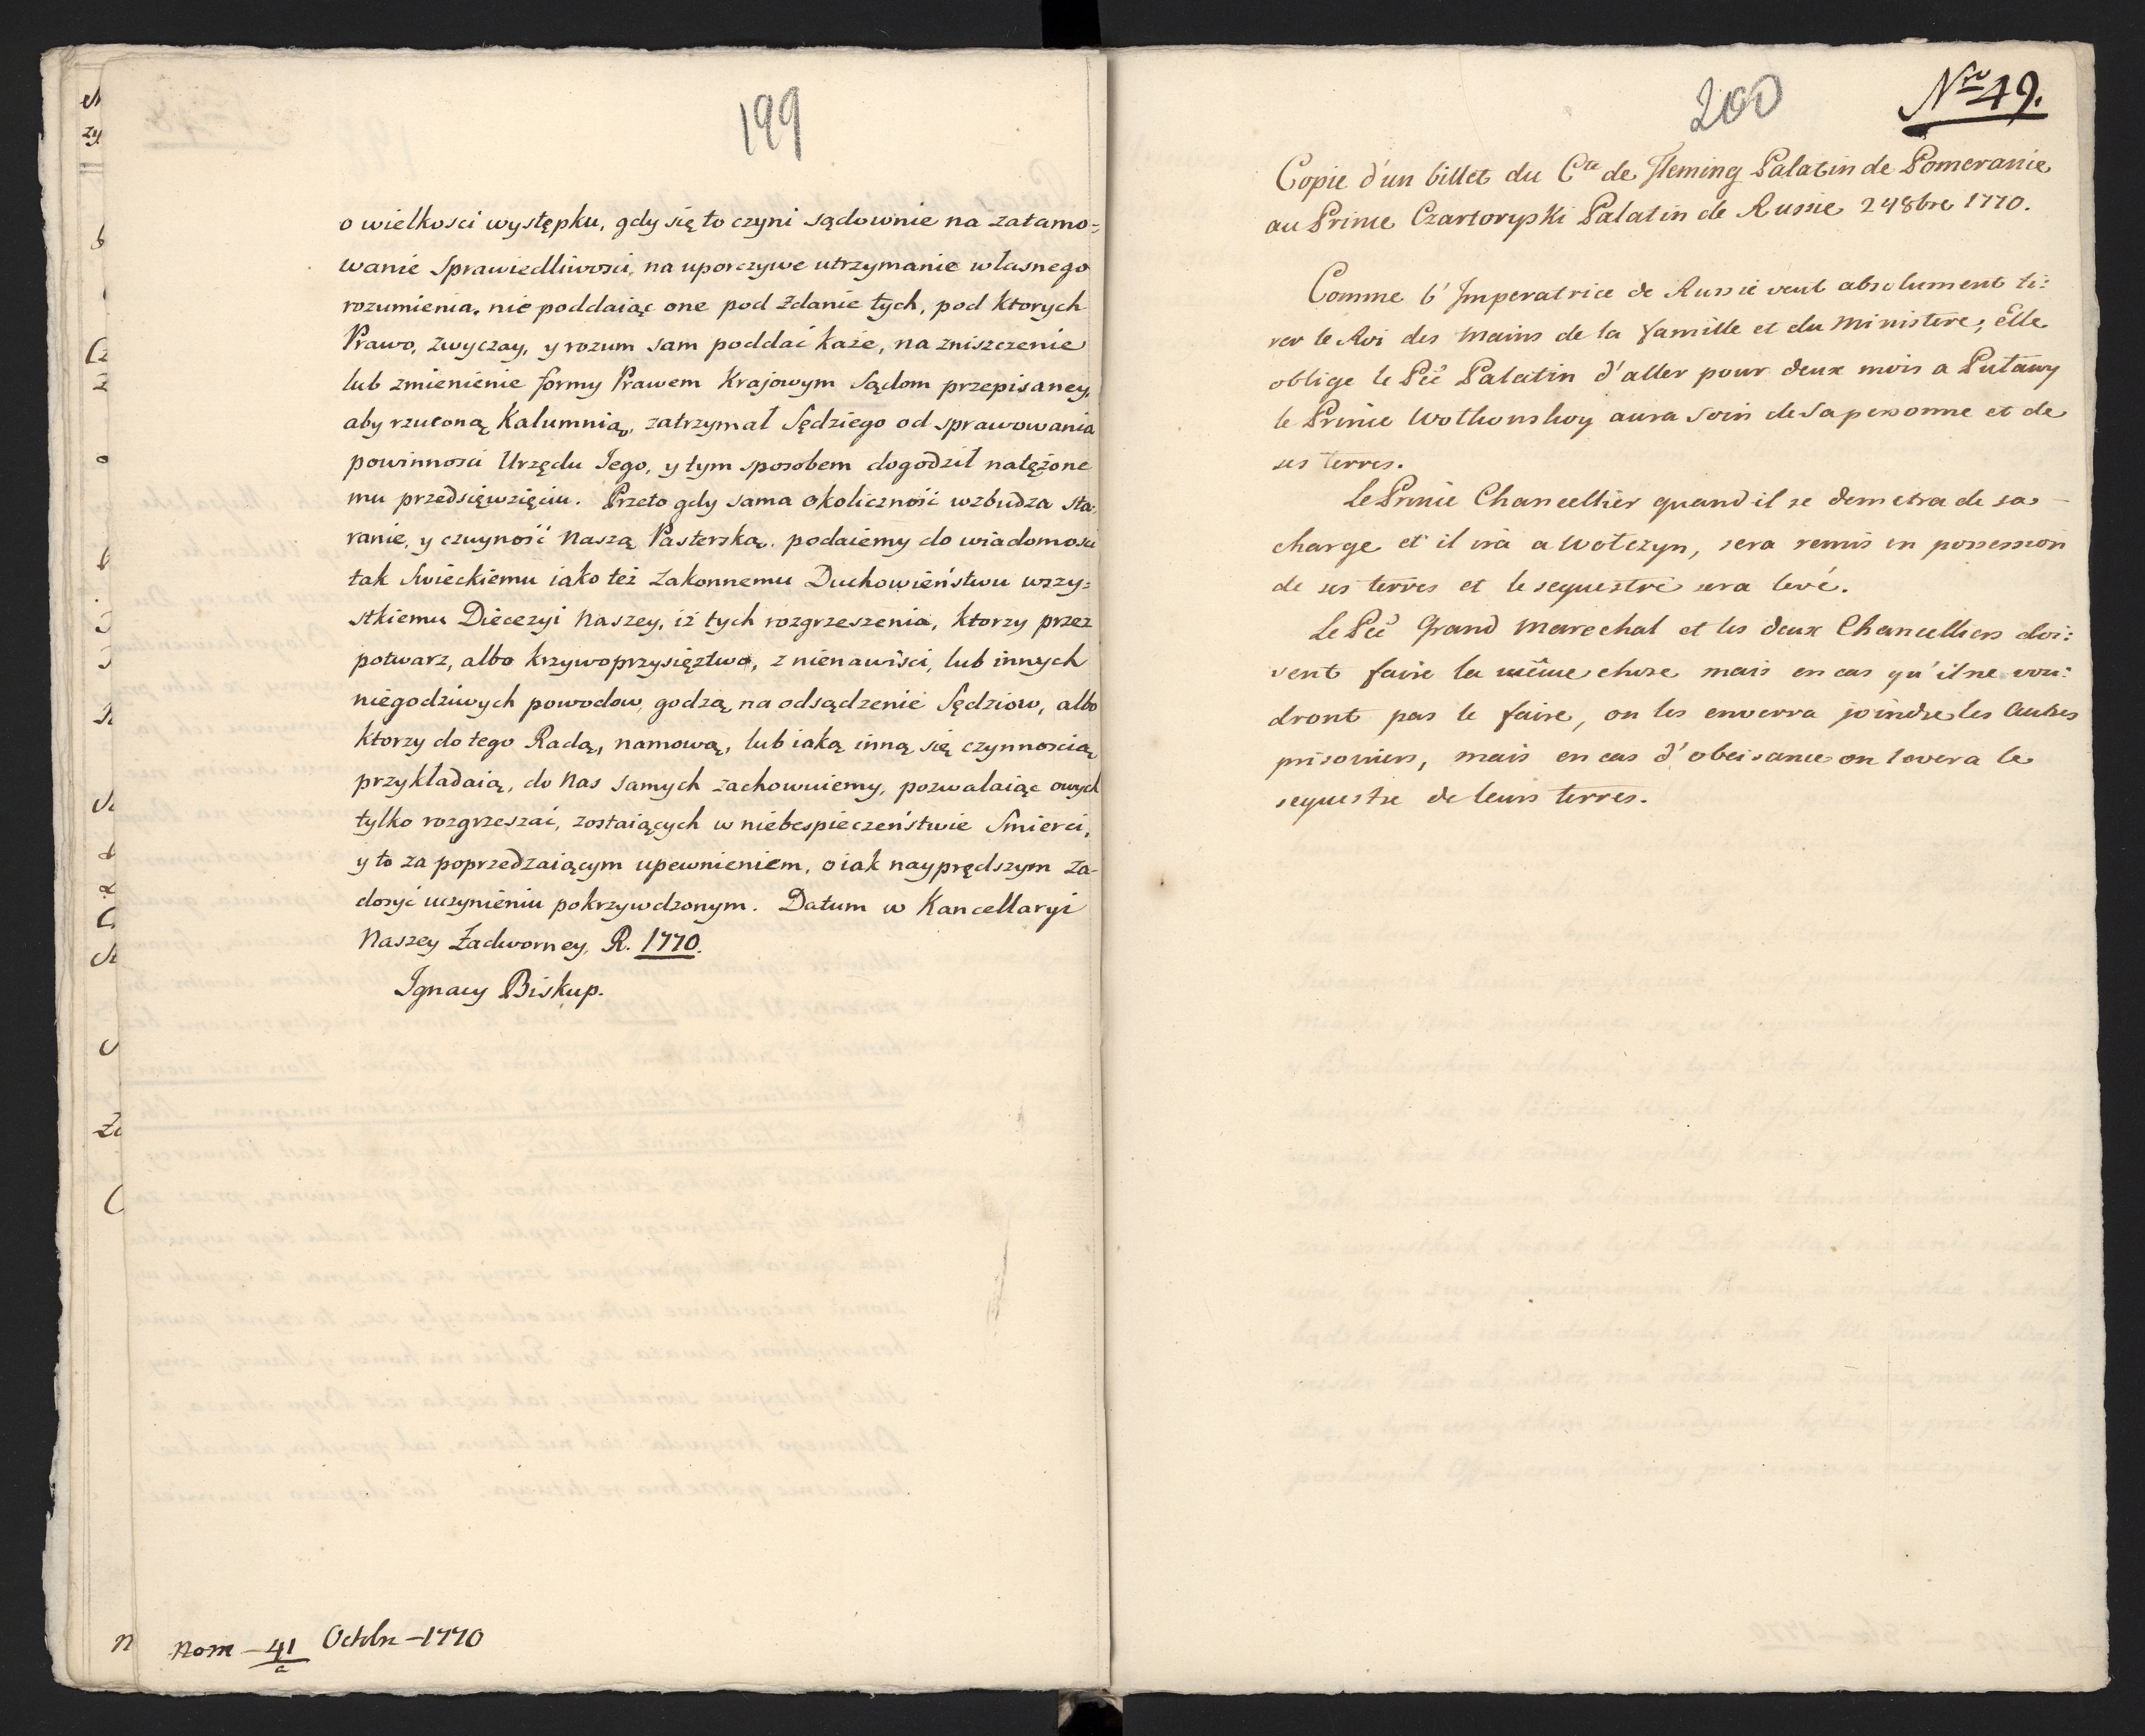 199
o wielkosci występku, gdy się to czyni sądownie na zatamo=
wanie Sprawiedliwosci, na uporczywe utrzymanie własnego
rozumienia, nie poddaiąc one pod zdanie tych, pod ktorych
Prawo, zwyczay, y rozum sam poddać każe, na zniszczenie
lub zmienienie formy Prawem Krajowym Sądom przepisaney,
aby rzuconą Kalumnią, zatrzymał Sędziego od sprawowania
powinnosci Urzędu Jego, y tym sposobem dogodził natężone
mu przedsięwzięciu. Przeto gdy sama okoliczność wzbudza sta,
ranie, y czuyność Naszą Pasterską, podaiemy do wiadomosci
tak Swieckiemu iako też Zakonnemu Duchowieństwu wszy=
stkiemu Diecezyi Naszey, iż tych rozgrzeszenia, ktorzy przez
potwarz, albo krzywoprzysięztwo, z nienawisci, lub innych
niegodziwych powodow, godzą na odsądzenie Sędziow, albo
ktorzy do tego Radą, namową, lub iaką inną się czynnoscią
przykładaią, do Nas samych zachowuiemy, pozwalaiąc owych
tylko rozgrzeszać, zostaiących w niebespieczeństwie Smierci,
y to za poprzedzaiącym upewnieniem, o iak nayprędszym za-
dosyć uczynieniu pokrzywdzonym. Datum w Kancellaryi
Naszey Zadworney, R. 1770.
Ignacy Biskup.
Nom - 41 Octobr - 1770
a
200
Nro 49.
Copie d'un billet du Cte de Fleming Palatin de Pomeranie
au Prince Czartoryski Palatin de Russie 24 8bre 1770.
Comme l'Imperatrice de Russie veut absolument ti:
rer le Roi des mains de la Famille et du Ministere, Elle
oblige le Pce Palatin d'aller pour deux mois a Putawy
le Prince Wolhonshoy aura soin de sa personne et de
ses terres.
Le Prince Chancellier quand il se demetra de sa
charge et il ira a Wolczyn, sera remis en possession
de ses terres et le sequestre sera levé.
Le Pce Grand Marechal et les deux Chancelliers doi:
vent faire la même chose mais en cas qu'il ne vou:
dront pas le faire, on les enverra joindre les autres
prisoniers, mais en cas d'obeisance on levera le
sequestre de leurs terres.